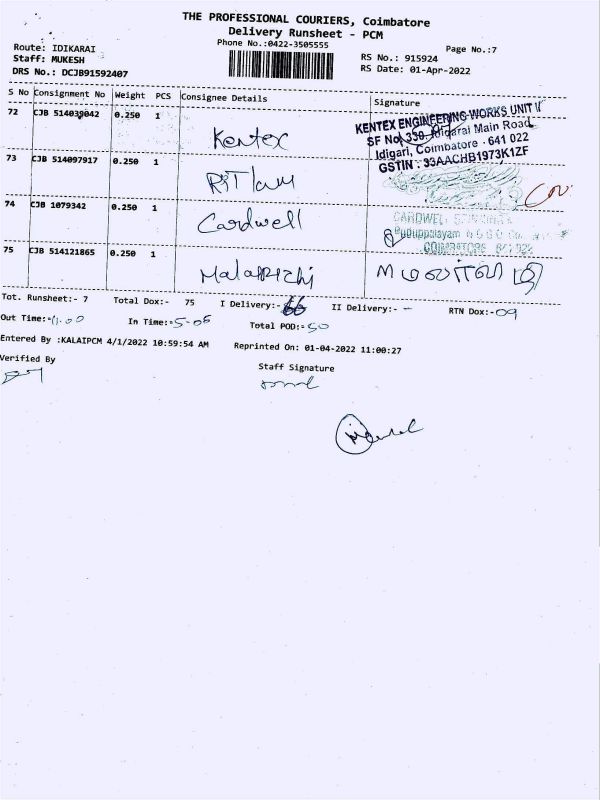 THE PROFESSIONAL COURIERS, Coimbatore
Delivery Runsheet - PCM
Phone No.:0422-3505555
Page No.:7
Route: IDIKARAI
Staff: MUKESH
DRS No.: DCJB91592407
RS No.: 915924
RS Date: 01-Apr-2022
S No Consignment No Weight PCS Consignee Details Signature
72 CJB 514039042 0.250 1 Kentex
KENTEX ENGINEERING WORKS UNIT II
SF No. 330, Idigarai Main Road,
Idigari, Coimbatore - 641 022
GSTIN : 33AACHB1973K1ZF
73 CJB 514097917 0.250 1
74 CJB 1079342 0.250 1 Cardwell
CARDWELL
COIMBATORE
75 CJB 514121865 0.250 1
Tot. Runsheet:- 7 Total Dox:- 75 I Delivery:- 66 II Delivery:- - RTN Dox:- 09
Out Time:- 11.00 In Time:- 5-05 Total POD:- 50
Entered By :KALAIPCM 4/1/2022 10:59:54 AM Reprinted On: 01-04-2022 11:00:27
Verified By
Staff Signature